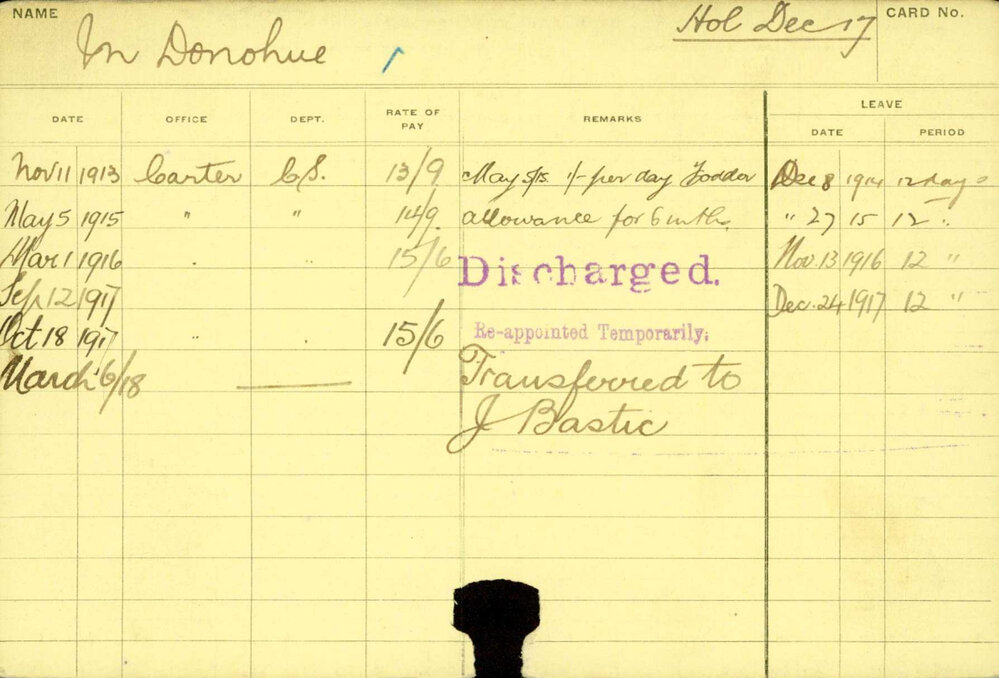 NAME Hol Dec 17 CARD No.
M Donohue
DATE OFFICE DEPT. RATE OF PAY REMARKS LEAVE
DATE PERIOD
Nov 11 1913 Carter C.S. 13/9 May 5/15 1/- per day Foddor Dec 8 1914 12 days
May 5 1915 " " 14/9 allowance for 6 mths. " 27 15 12 "
Mar 1 1916 " " 15/6 Discharged. Nov. 13 1916 12 "
Sep 12 1917 Dec. 24 1917 12 "
Oct 18 1917 " " 15/6 Re-appointed Temporarily.
March 6/18 Transferred to
J Bastic